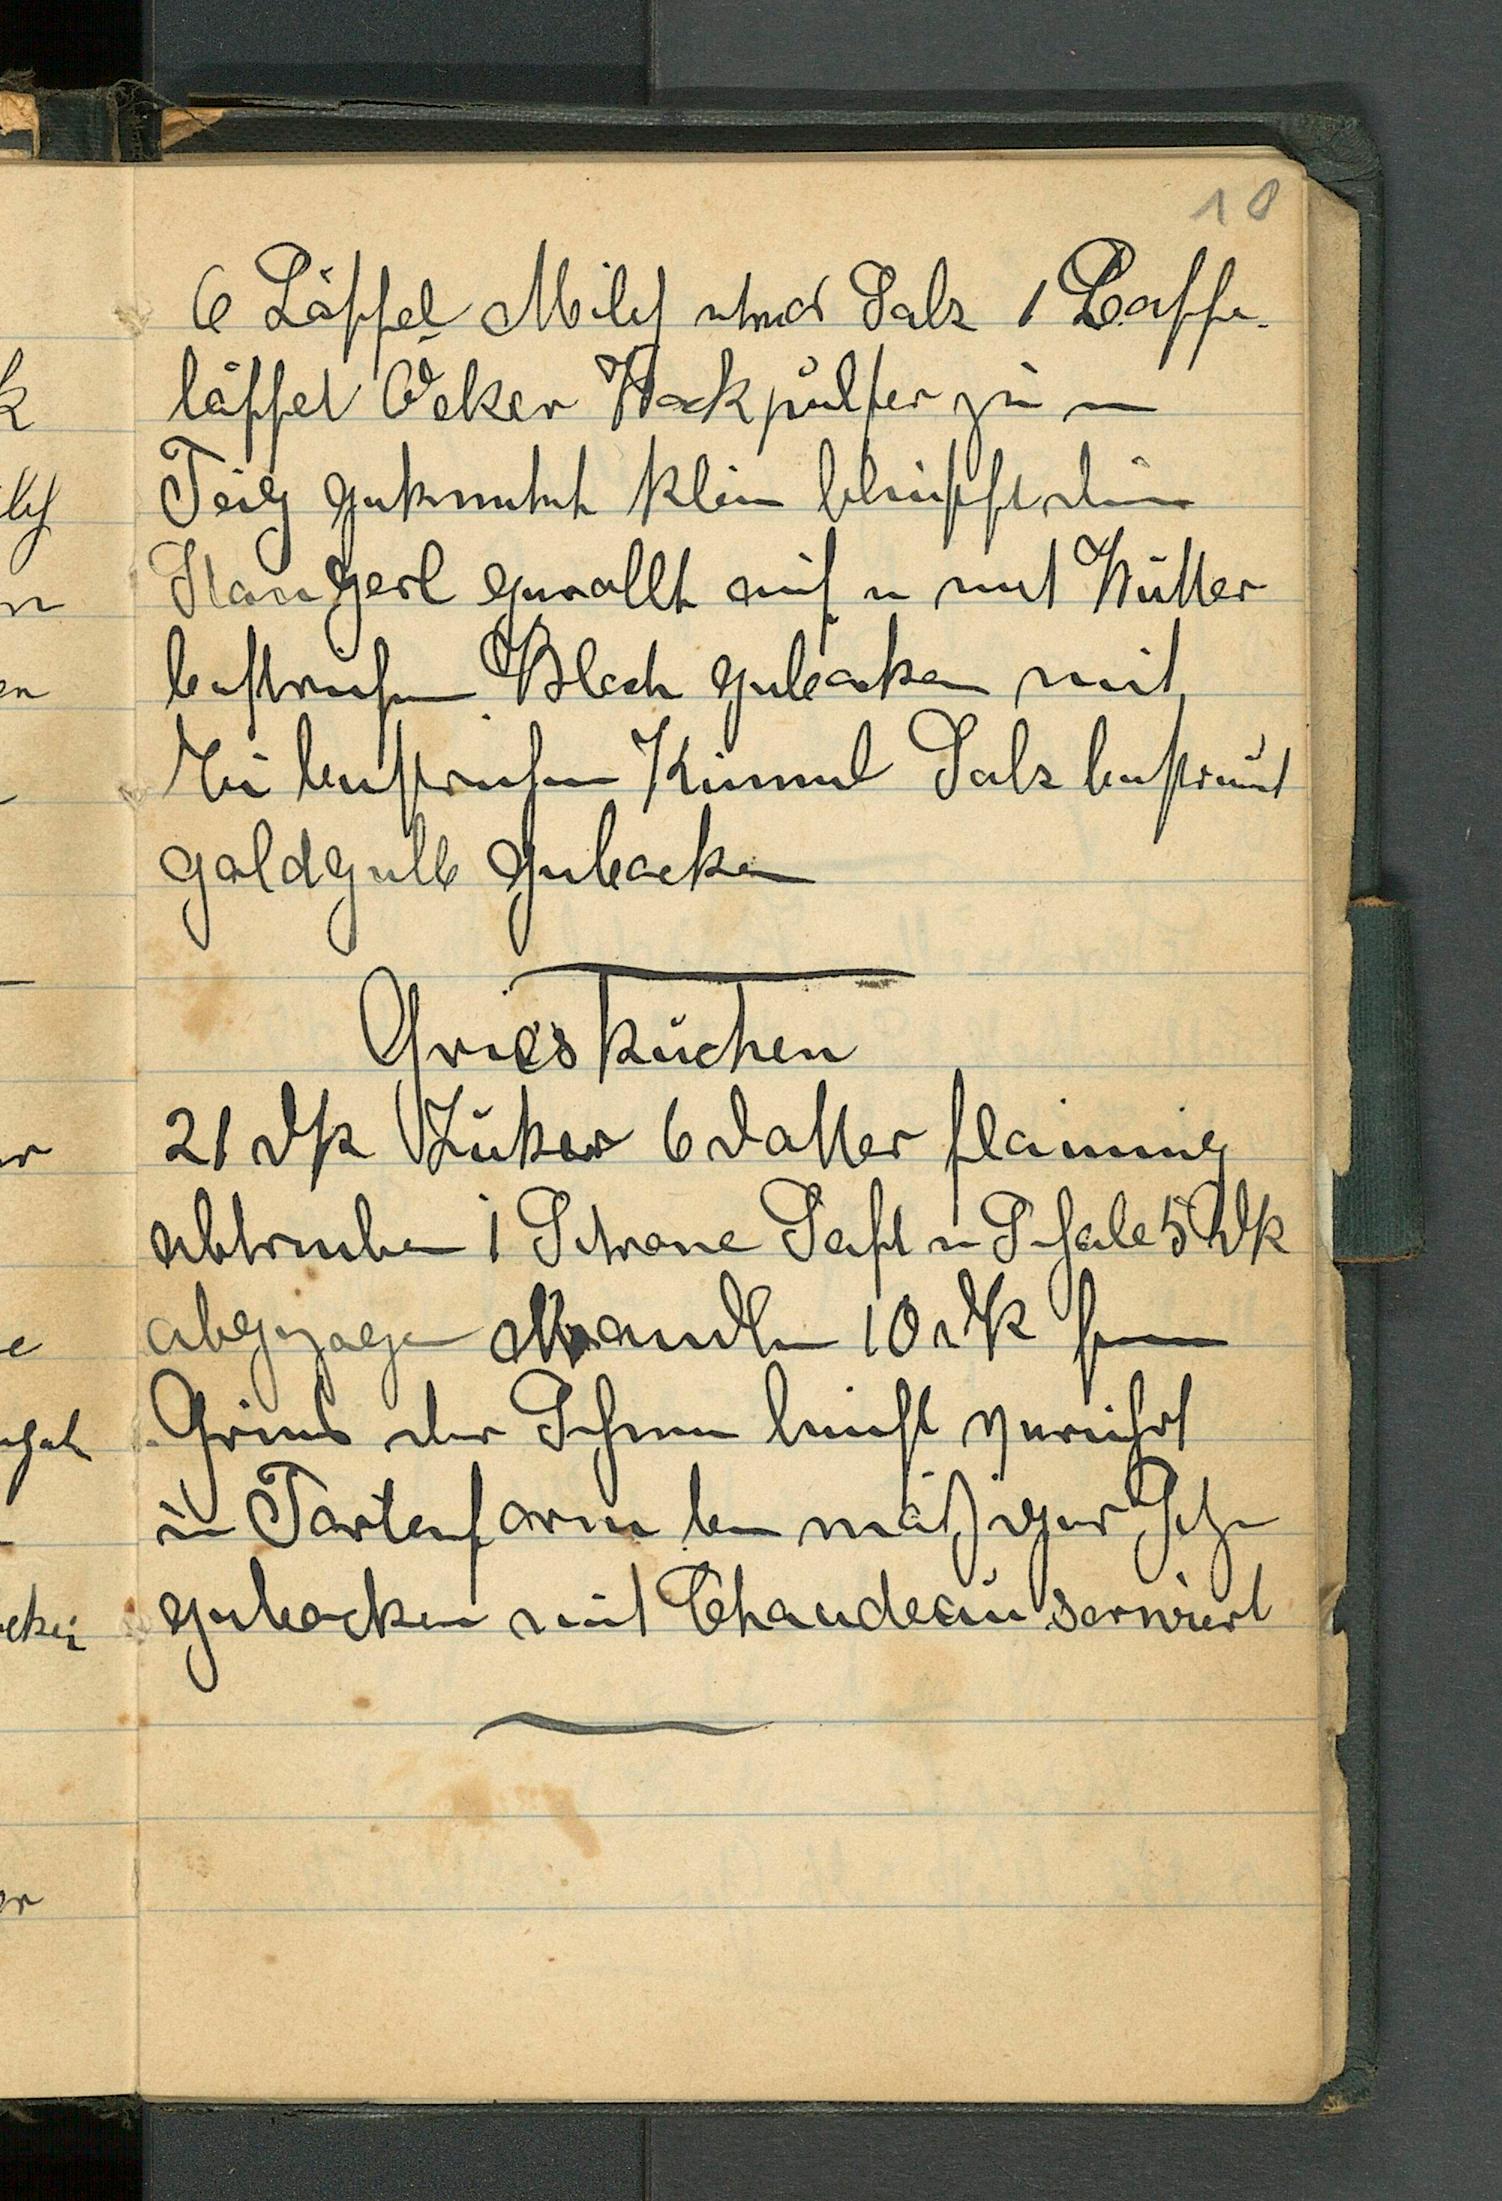 18
6 Löffel Milch etwas Salz 1 Kaffe-
löffel Oeker Backpulfer zu
Teig geknetet klein
Stangerl gerollt auf u mit Butter
bestrichen Blech gebacken mit
Ei bestrichen Kümmel Salz bestreut
goldgelb gebacken
Grieskuchen
21 dk Zuker 6 Dotter flaumig
abtreiben 1 Citrone Saft u Schale 5 dk
abgezogen Mandln 10 dk fein
Gries der Schnee leicht gerührt
in Tortenform bei mäßiger Hitze
gebacken mit Chaudeau serwiert